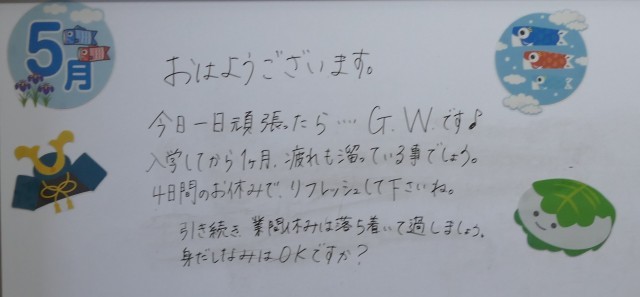 5月
おはようございます。
今日一日頑張ったら…. G.W.です♪
入学してから1ヶ月、疲れも溜っている事でしょう。
4日間のお休みで、リフレッシュして下さいね。
引き続き、業間休みは落ち着いて過しましょう。
身だしなみはOKですか?